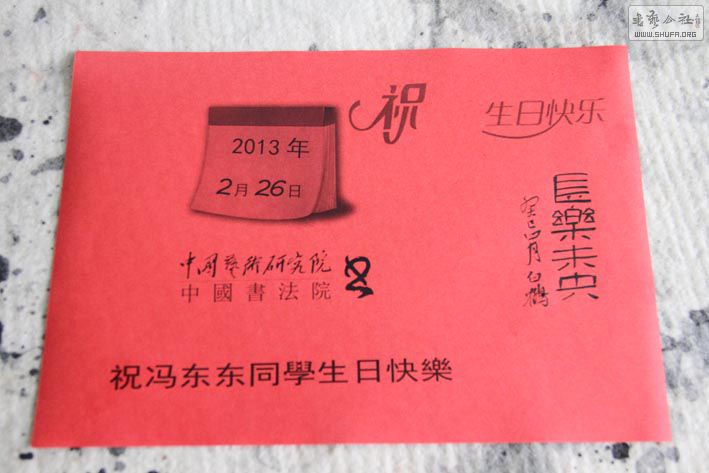 書藝公社
WWW.SHUFA.ORG
祝
生日快乐
2013 年
2月 26日
長樂未央
癸巳四月 白鶴
中国艺术研究院
中國書法院
祝冯东东同學生日快樂